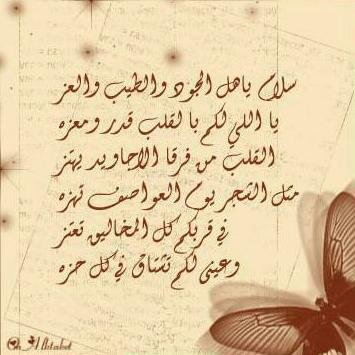 سلام ياهل الجود والطيب والعز
يا اللي لكم بالقلب قدر ومعزه
القلب من فرقا الاجاويد يهتز
مثل الشجر يوم العواصف تهزه
في قربكم كل المخاليق تعتز
وعيني لكم تشتاق في كل حزه